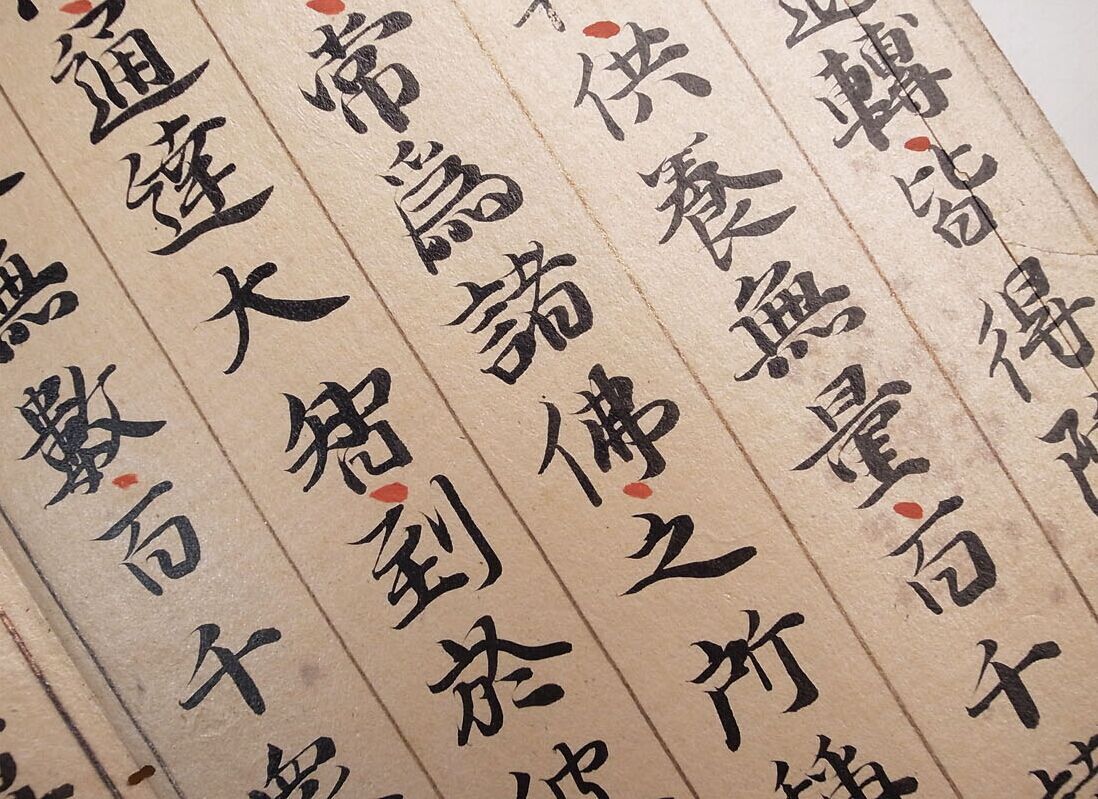 退轉皆得陀
供養無量百千諸
常爲諸佛之所稱
通達大智到於彼
無數百千衆